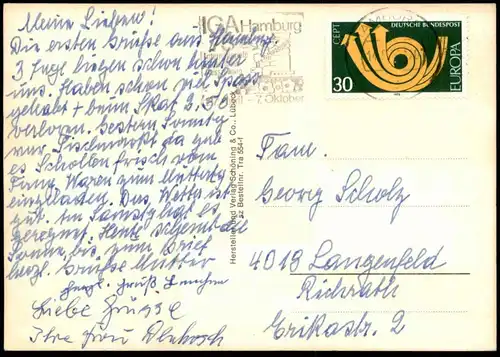 Meine Lieben!
Die ersten Grüße aus Hamburg.
3 Tage liegen schon hinter
uns. Haben schon viel Spass
gehabt + beim Skat 2.50
verloren. Gestern Sonntag
war Fischmarkt da gab
es Schollen frisch vom
Fang. Waren zum Mittag
eingeladen. Das Wetter ist
gut. Am Samstag hat es
geregnet. Heute scheint die
Sonne, bis zum Brief
herzl. Grüße Mutter
herzl. Gruß
Liebe Grüsse
Ihre Frau
IGA Hamburg
- 7. Oktober
CEPT
DEUTSCHE BUNDESPOST
EUROPA
30
Hersteller und Verlag Schöning & Co., Lübeck
Bestellnr. Tra 554 f
Fam.
Georg Scholz
4019 Langenfeld
Richrath
Erikastraße 2